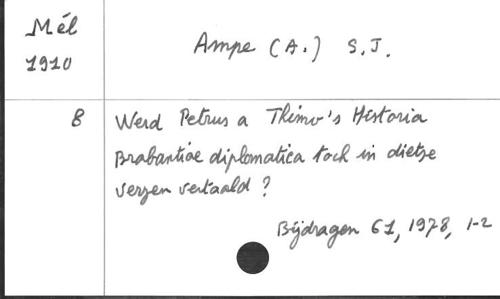 Mél
1910
Ampe (A.) S.J.
8
Werd Petrus a Thimo's Historia
Brabantiae diplomatica toch in dietse
verzen vertaald ?
Bijdragen 61, 1978, 1-2